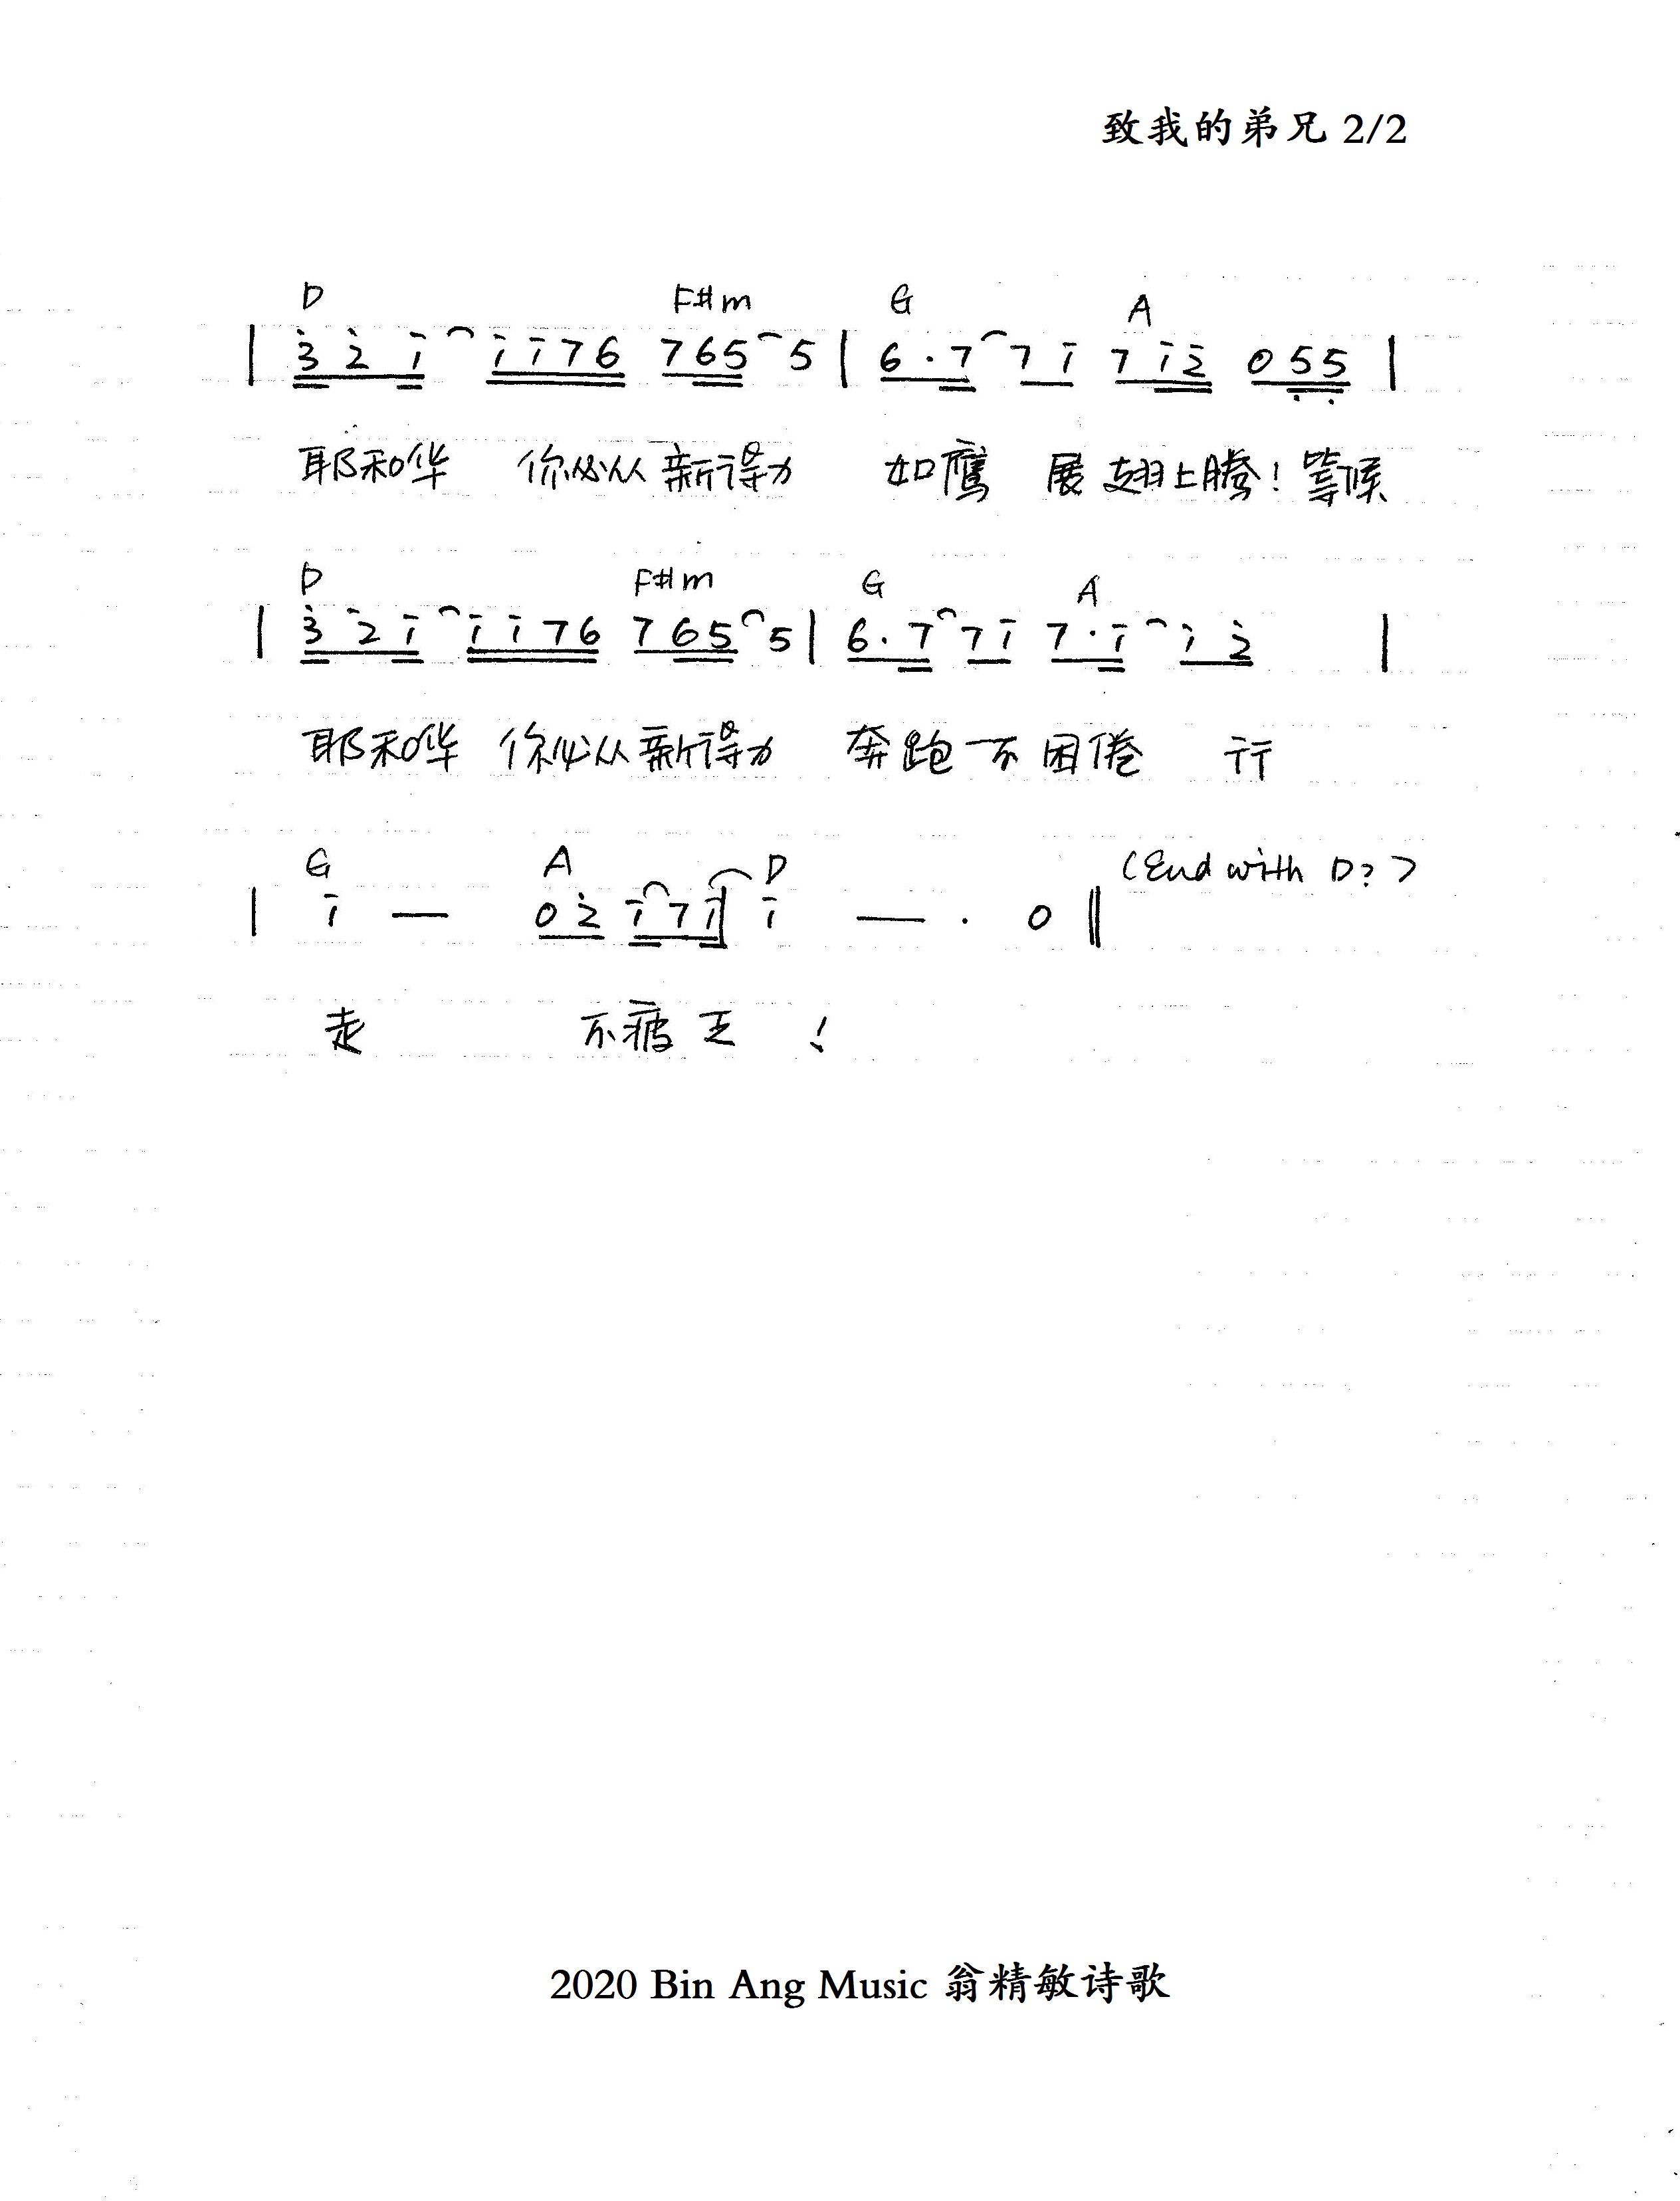 致我的弟兄 2/2
D F#m G A
| 3̇ 2̇ 1̇ ⌒ 1̇ 1̇ 7 6 7 6 5 ⌒ 5 | 6 · 7 ⌒ 7 1̇ 7 1̇ 2̇ 0 5̣ 5̣ |
耶和华 你必从新得力 如鹰 展翅上腾! 等候
D F#m G A
| 3̇ 2̇ 1̇ ⌒ 1̇ 1̇ 7 6 7 6 5 ⌒ 5 | 6 · 7 ⌒ 7 1̇ 7 · 1̇ ⌒ 1̇ 2̇ |
耶和华 你必从新得力 奔跑不困倦 行
G A D (End with D?)
| 1̇ — 0 2̇ 1̇ 7 1̇ | 1̇ — · 0 ‖
走 不疲乏 !
2020 Bin Ang Music 翁精敏诗歌